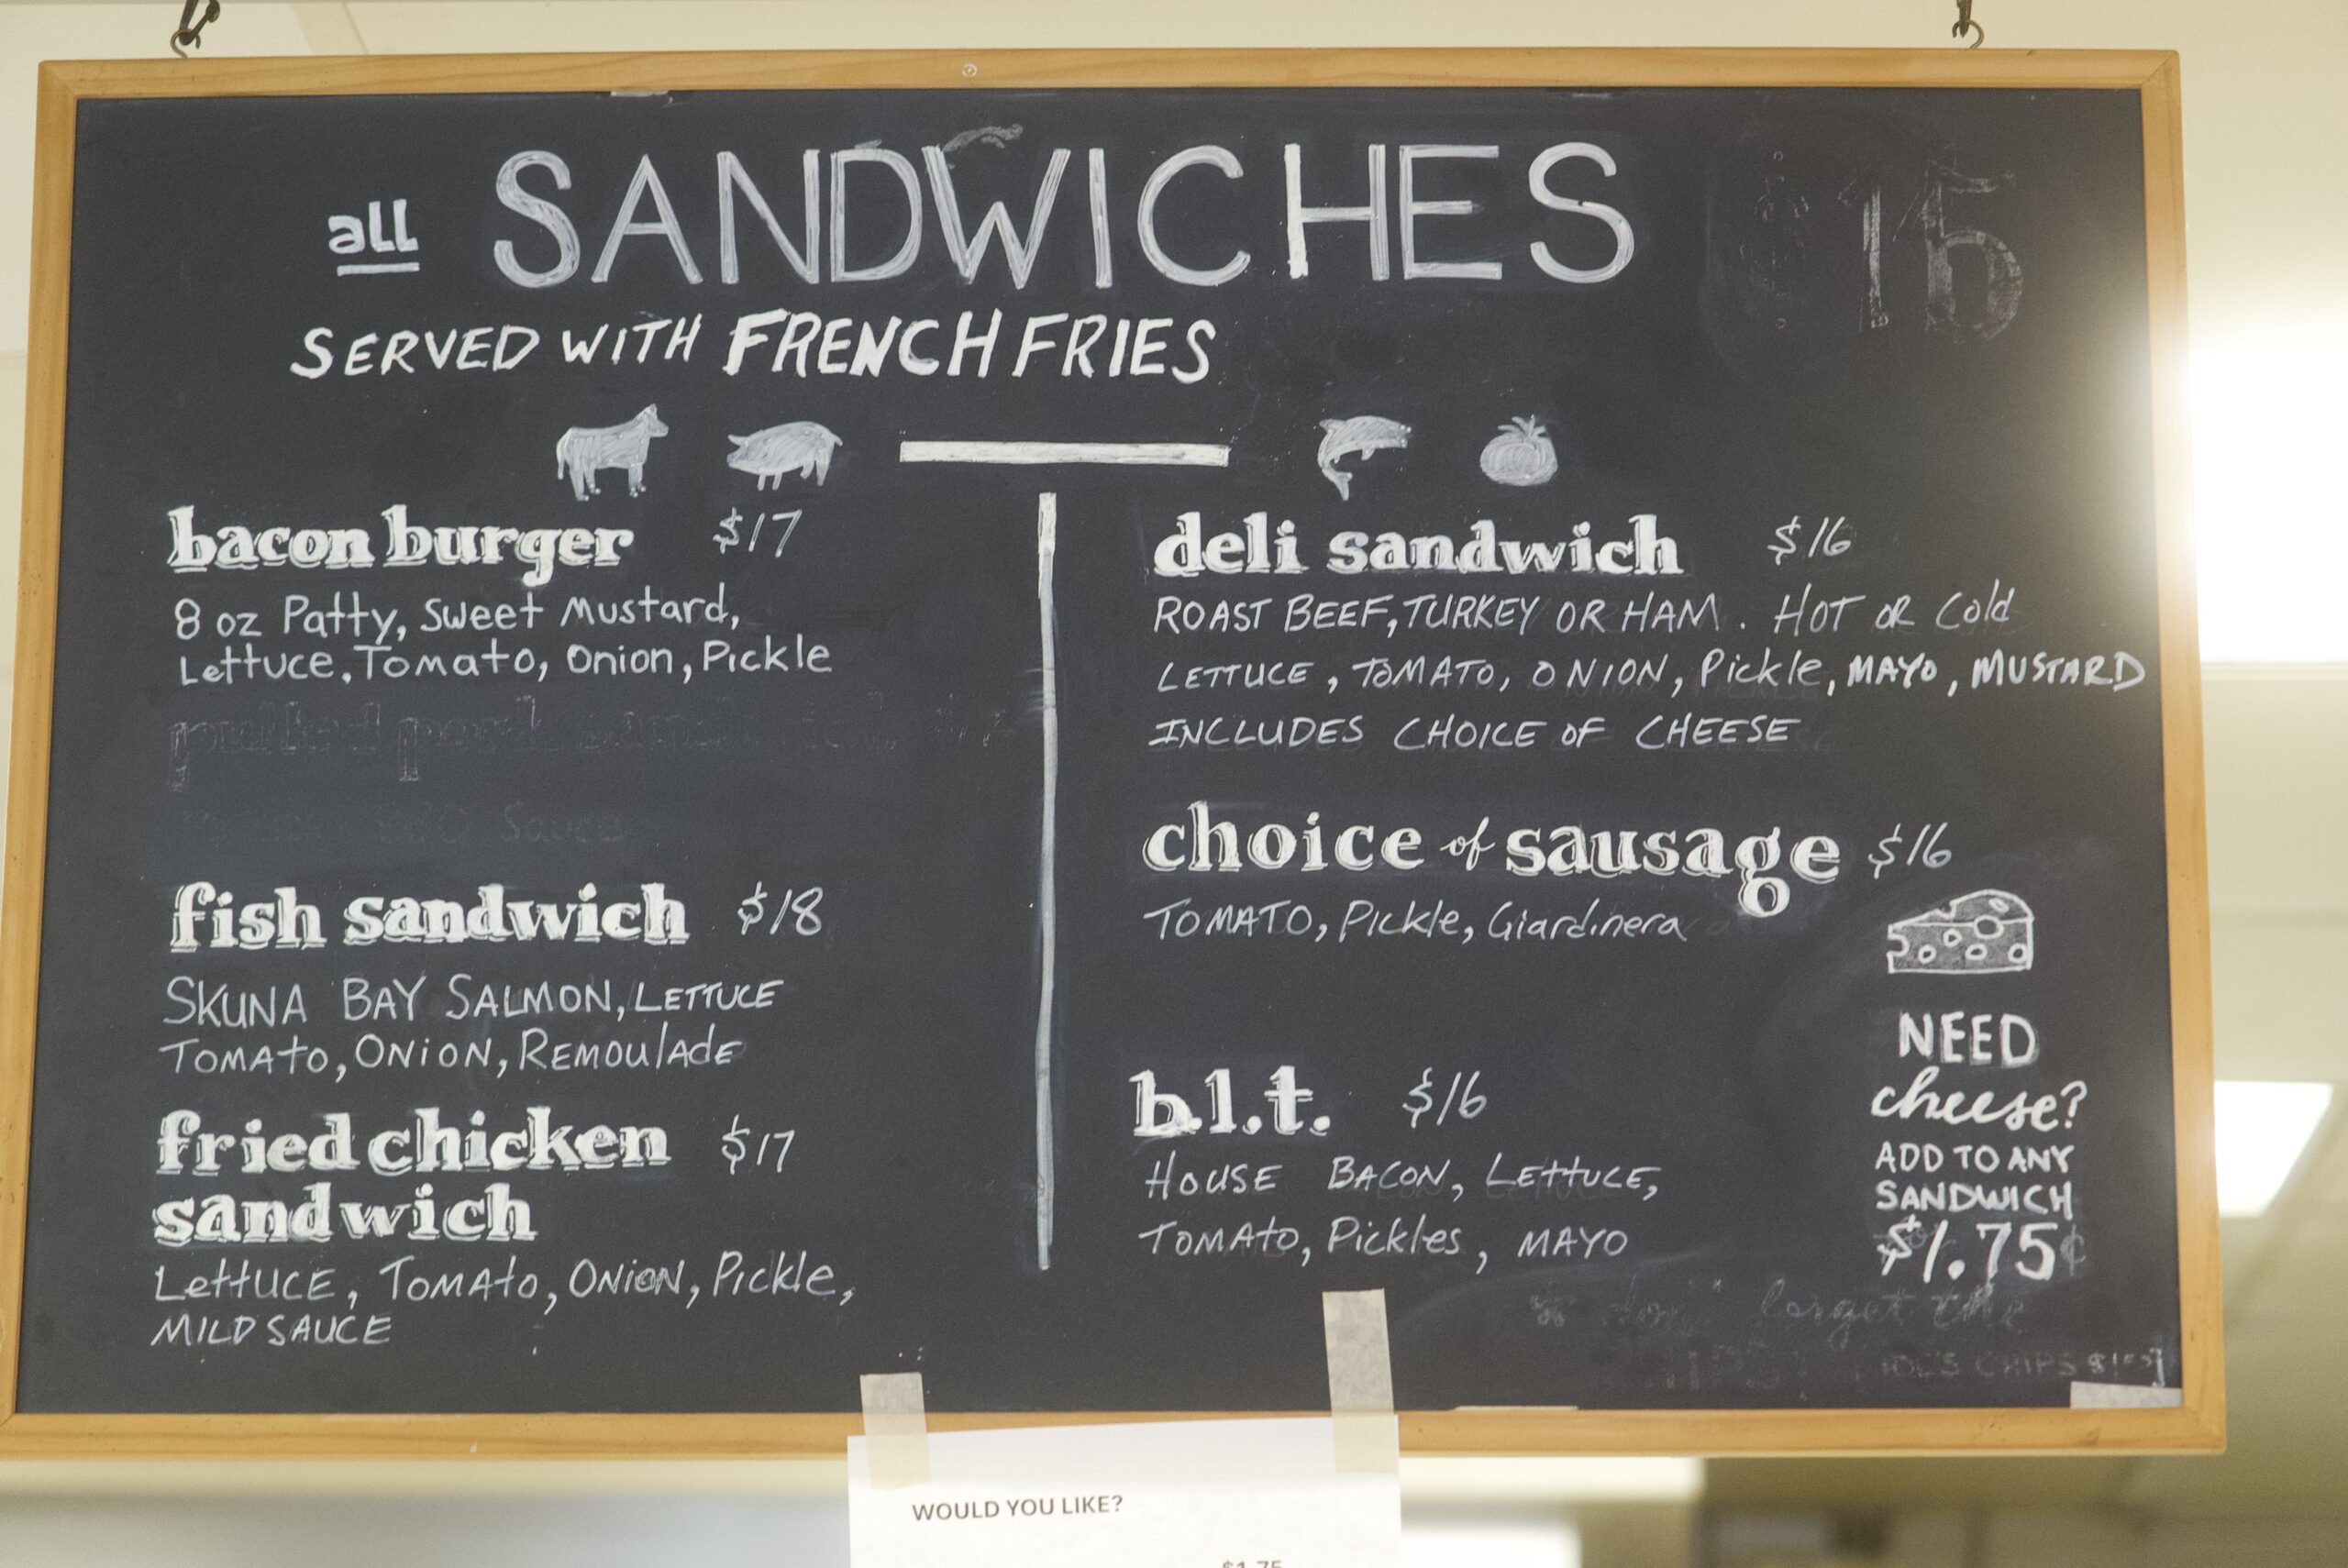 all SANDWICHES
$15
SERVED WITH FRENCH FRIES
bacon burger $17
8 oz Patty, Sweet Mustard,
Lettuce, Tomato, Onion, Pickle
pulled pork
BBQ Sauce
fish sandwich $18
SKUNA BAY SALMON, LETTUCE
TOMATO, ONION, REMOULADE
fried chicken $17
sandwich
LETTUCE, TOMATO, ONION, PICKLE,
MILD SAUCE
deli sandwich $16
ROAST BEEF, TURKEY OR HAM. HOT OR Cold
LETTUCE, TOMATO, ONION, Pickle, MAYO, MUSTARD
INCLUDES CHOICE OF CHEESE
choice of sausage $16
TOMATO, Pickle, Giardinera
b.l.t. $16
HOUSE BACON, LETTUCE,
TOMATO, Pickles, MAYO
NEED
cheese?
ADD TO ANY
SANDWICH
$1.75¢
don't forget the
CHIPS
WOULD YOU LIKE?
$1.75